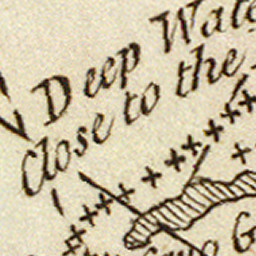 Deep Wate
Close to the